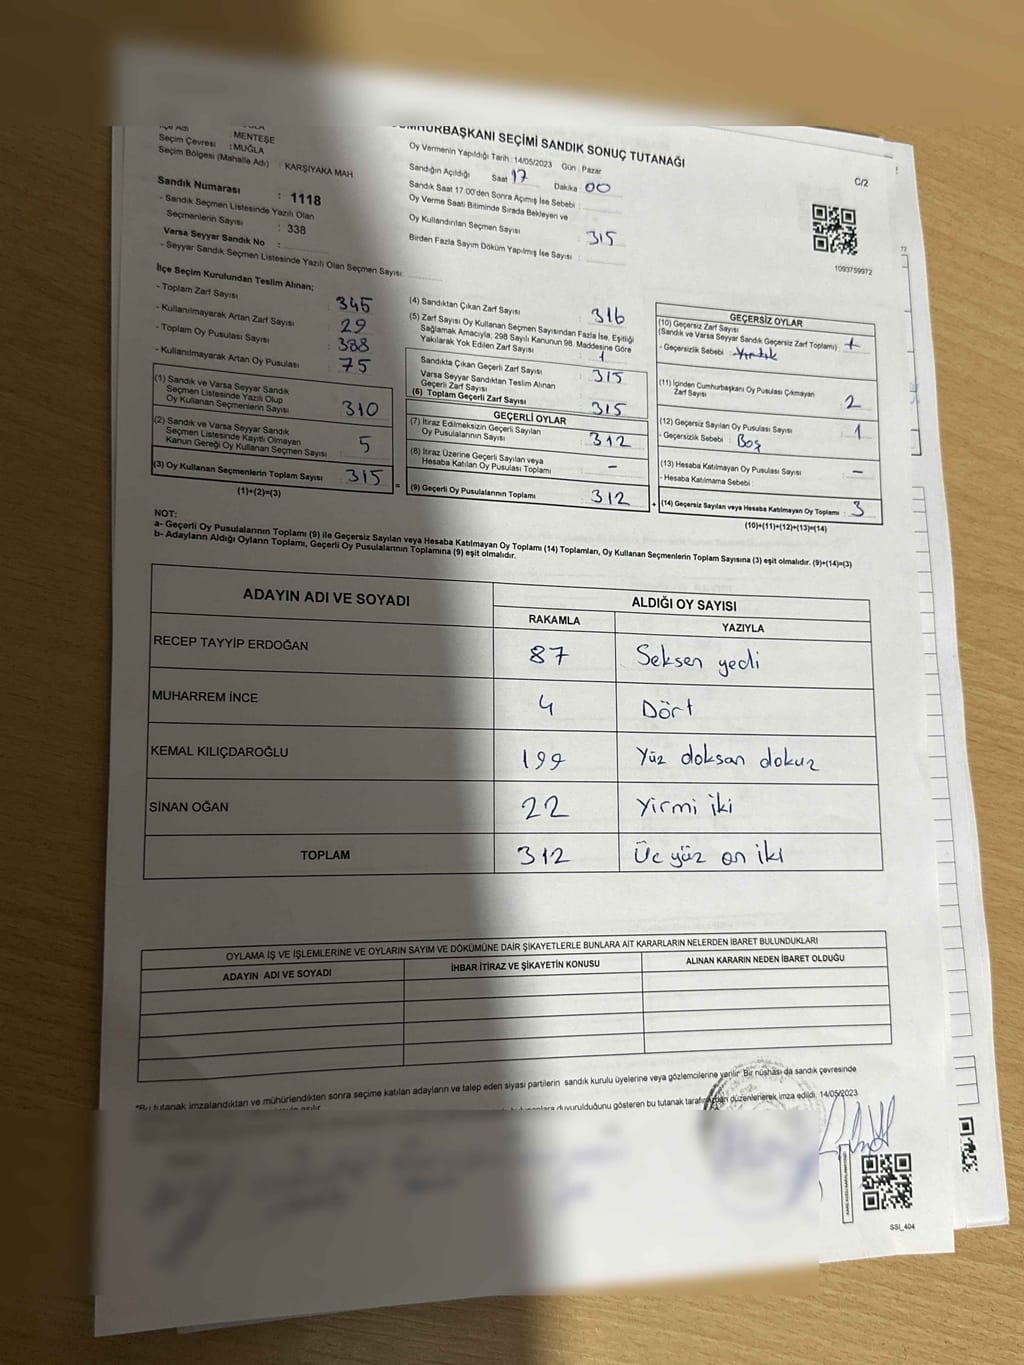 CUMHURBAŞKANI SEÇİMİ SANDIK SONUÇ TUTANAĞI
C/2
İlçe Adı : MENTEŞE
Seçim Çevresi : MUĞLA
Seçim Bölgesi (Mahalle Adı) : KARŞIYAKA MAH
Sandık Numarası : 1118
- Sandık Seçmen Listesinde Yazılı Olan
Seçmenlerin Sayısı : 338
Varsa Seyyar Sandık No :
- Seyyar Sandık Seçmen Listesinde Yazılı Olan Seçmen Sayısı:
Oy Vermenin Yapıldığı Tarih : 14/05/2023 Gün : Pazar
Sandığın Açıldığı Saat 17 Dakika 00
Sandık Saat 17.00'den Sonra Açımış İse Sebebi :
Oy Verme Saati Bitiminde Sırada Bekleyen ve
Oy Kullandırılan Seçmen Sayısı : 315
Birden Fazla Sayım Döküm Yapılmış İse Sayısı :
1093759972
İlçe Seçim Kurulundan Teslim Alınan;
- Toplam Zarf Sayısı : 345
- Kullanılmayarak Artan Zarf Sayısı : 29
- Toplam Oy Pusulası Sayısı : 388
- Kullanılmayarak Artan Oy Pusulası : 75
(1) Sandık ve Varsa Seyyar Sandık
Seçmen Listesinde Yazılı Olup
Oy Kullanan Seçmenlerin Sayısı : 310
(2) Sandık ve Varsa Seyyar Sandık
Seçmen Listesinde Kayıtlı Olmayan
Kanun Gereği Oy Kullanan Seçmen Sayısı : 5
(3) Oy Kullanan Seçmenlerin Toplam Sayısı : 315
(1)+(2)=(3)
=
(4) Sandıktan Çıkan Zarf Sayısı : 316
(5) Zarf Sayısı Oy Kullanan Seçmen Sayısından Fazla İse, Eşitliği
Sağlamak Amacıyla; 298 Sayılı Kanunun 98. Maddesine Göre
Yakılarak Yok Edilen Zarf Sayısı : 1
Sandıkta Çıkan Geçerli Zarf Sayısı : 315
Varsa Seyyar Sandıktan Teslim Alınan
Geçerli Zarf Sayısı :
(6) Toplam Geçerli Zarf Sayısı : 315
GEÇERLİ OYLAR
(7) İtiraz Edilmeksizin Geçerli Sayılan
Oy Pusulalarının Sayısı : 312
(8) İtiraz Üzerine Geçerli Sayılan veya
Hesaba Katılan Oy Pusulası Toplamı : -
(9) Geçerli Oy Pusulalarının Toplamı : 312
+
GEÇERSİZ OYLAR
(10) Geçersiz Zarf Sayısı
(Sandık ve Varsa Seyyar Sandık Geçersiz Zarf Toplamı) :
- Geçersizlik Sebebi :
(11) İçinden Cumhurbaşkanı Oy Pusulası Çıkmayan
Zarf Sayısı : 2
(12) Geçersiz Sayılan Oy Pusulası Sayısı : 1
- Geçersizlik Sebebi : Boş
(13) Hesaba Katılmayan Oy Pusulası Sayısı : -
- Hesaba Katılmama Sebebi :
(14) Geçersiz Sayılan veya Hesaba Katılmayan Oy Toplamı : 3
(10)+(11)+(12)+(13)=(14)
NOT:
a- Geçerli Oy Pusulalarının Toplamı (9) ile Geçersiz Sayılan veya Hesaba Katılmayan Oy Toplamı (14) Toplamları, Oy Kullanan Seçmenlerin Toplam Sayısına (3) eşit olmalıdır. (9)+(14)=(3)
b- Adayların Aldığı Oyların Toplamı, Geçerli Oy Pusulalarının Toplamına (9) eşit olmalıdır.
ADAYIN ADI VE SOYADI
ALDIĞI OY SAYISI
RAKAMLA YAZIYLA
RECEP TAYYİP ERDOĞAN 87 Seksen yedi
MUHARREM İNCE 4 Dört
KEMAL KILIÇDAROĞLU 199 Yüz doksan dokuz
SİNAN OĞAN 22 Yirmi iki
TOPLAM 312 Üç yüz on iki
OYLAMA İŞ VE İŞLEMLERİNE VE OYLARIN SAYIM VE DÖKÜMÜNE DAİR ŞİKAYETLERLE BUNLARA AİT KARARLARIN NELERDEN İBARET BULUNDUKLARI
ADAYIN ADI VE SOYADI İHBAR İTİRAZ VE ŞİKAYETİN KONUSU ALINAN KARARIN NEDEN İBARET OLDUĞU
*Bu tutanak imzalandıktan ve mühürlendikten sonra seçime katılan adayların ve talep eden siyasi partilerin sandık kurulu üyelerine veya gözlemcilerine verilir. Bir nüshası da sandık çevresinde
duyurulduğunu gösteren bu tutanak tarafımızdan düzenlenerek imza edildi. 14/05/2023
SSI_404